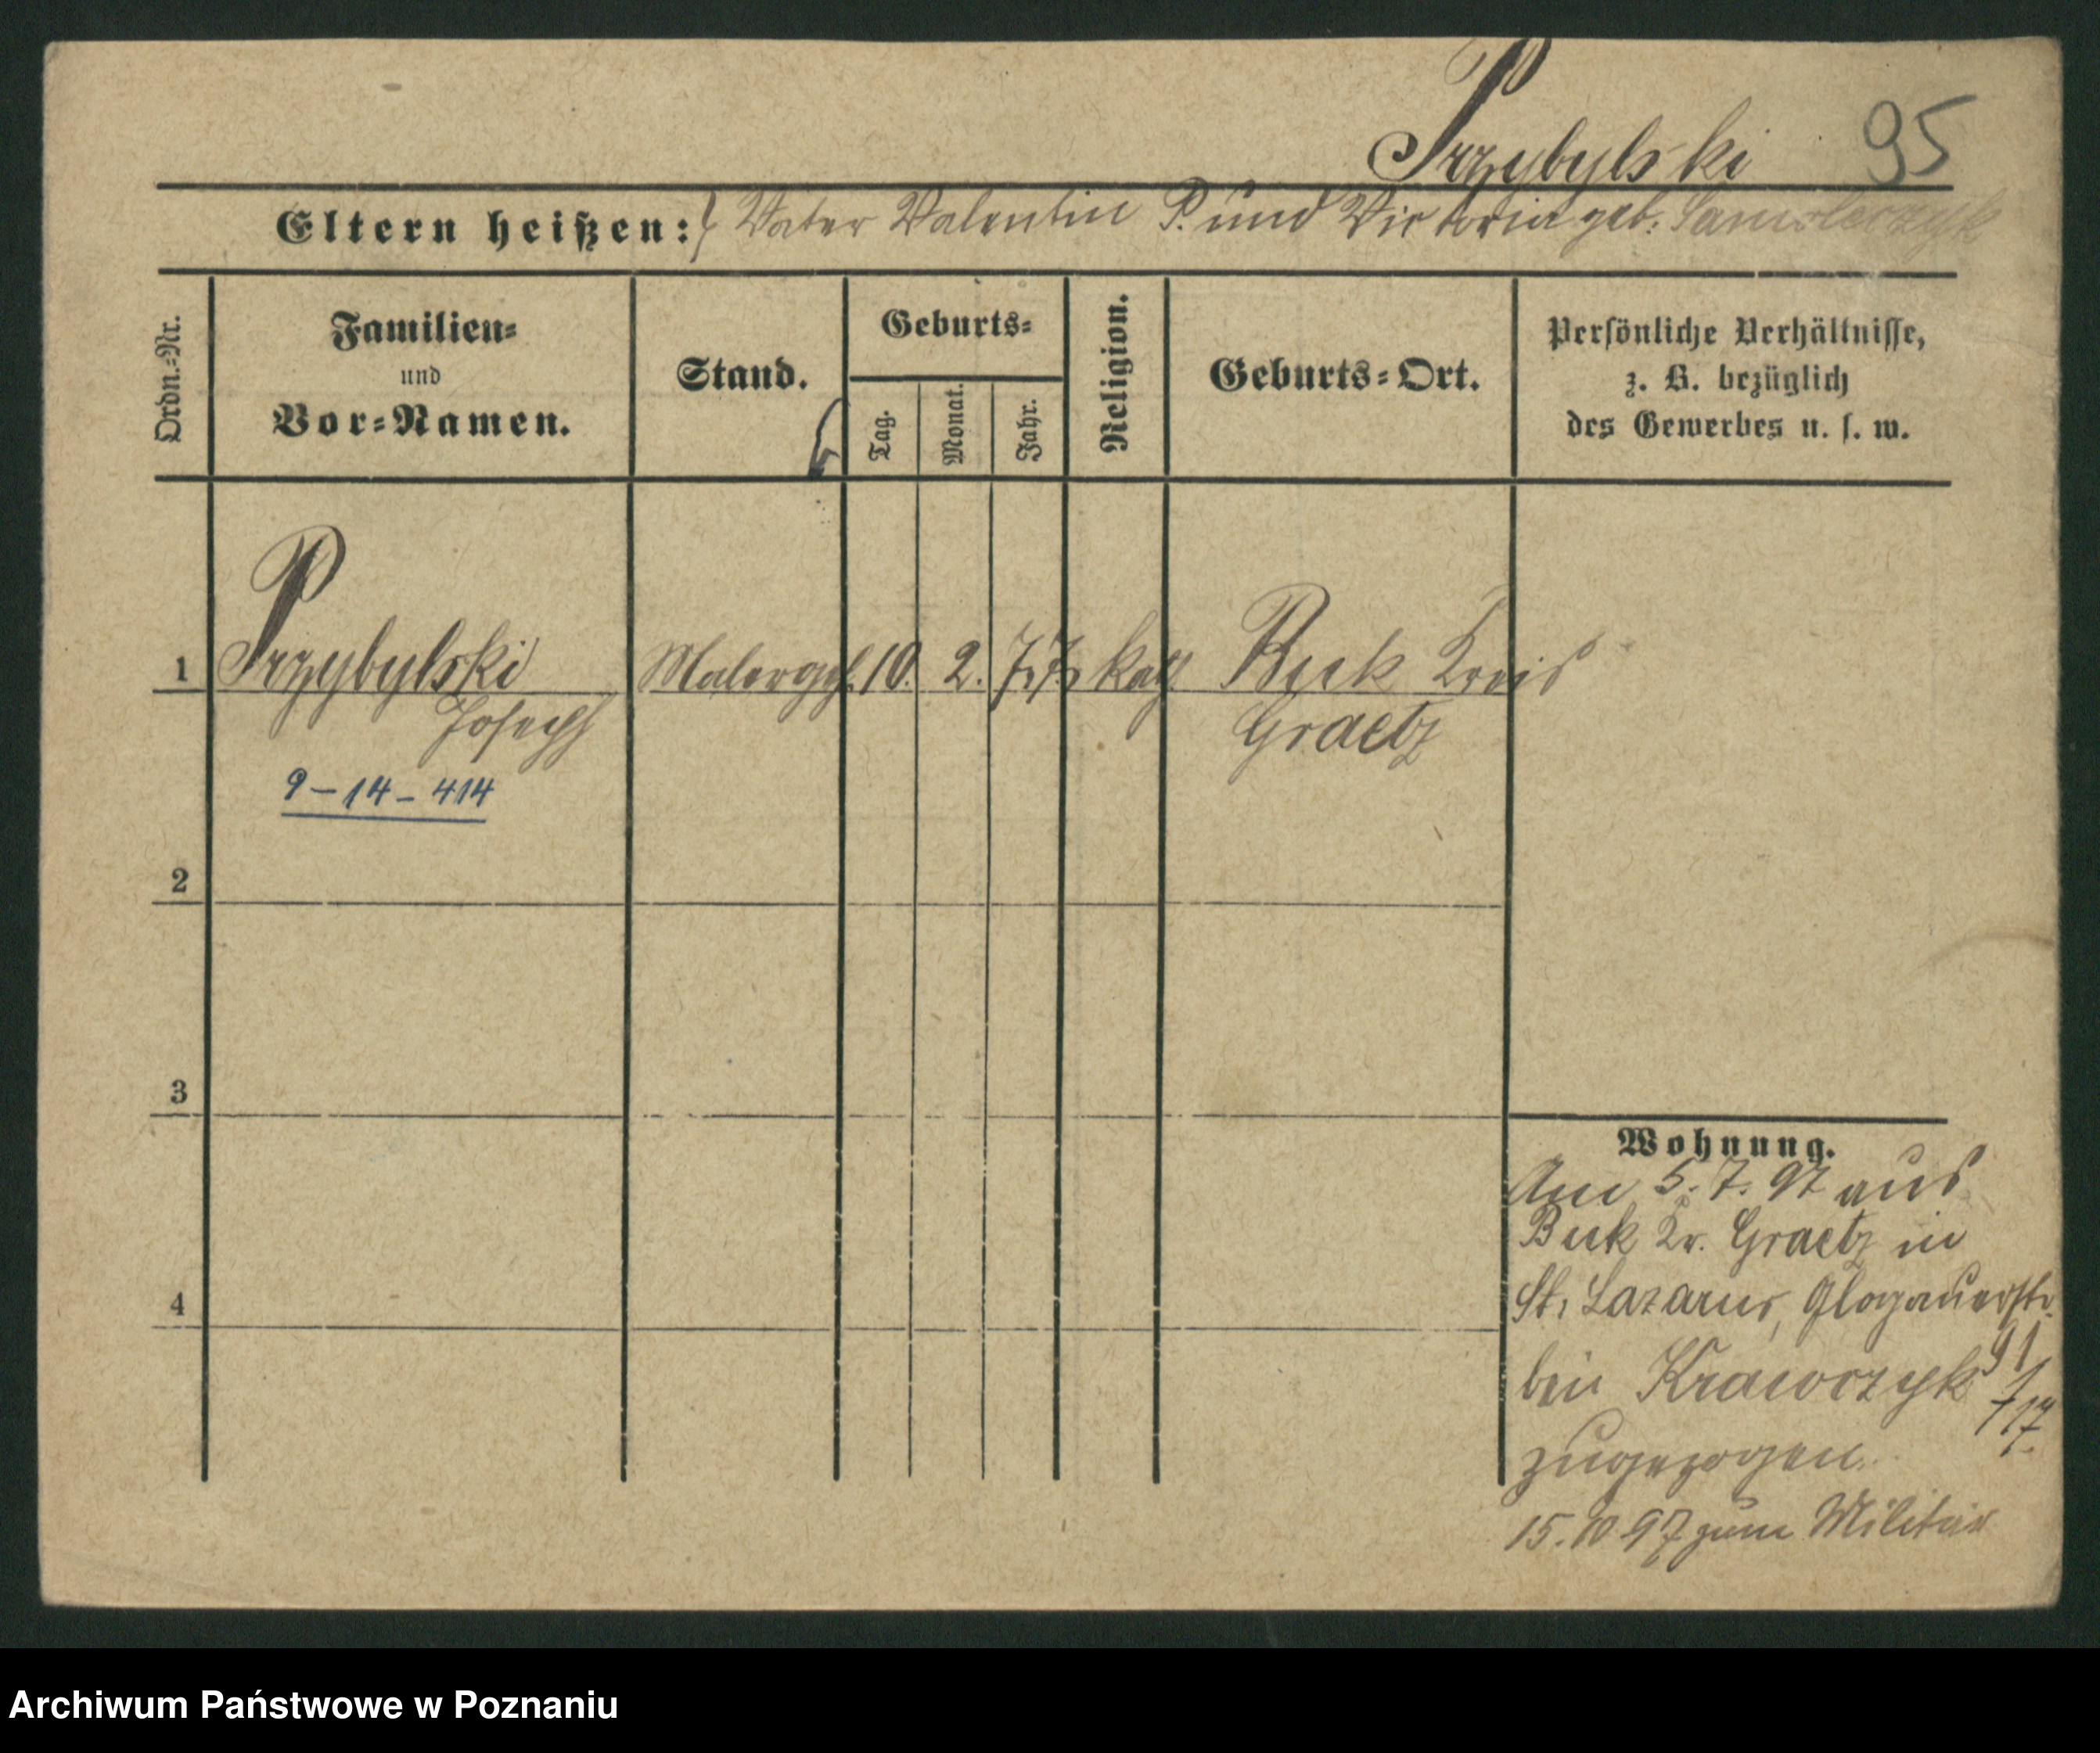 Przybylski 95
Eltern heißen: Vater Valentin P. und Victoria geb.
Ordn.-Nr.
Familien-
und
Vor-Namen.
Stand.
Geburts-
Tag.
Monat.
Jahr.
Religion.
Geburts-Ort.
Persönliche Verhältnisse,
z. B. bezüglich
des Gewerbes u. s. w.
1 Przybylski Malergh. 10. 2. 77 kath Buk Kreis
Joseph Graetz
9-14-414
2
3
4
Wohnung.
Am 5.7.97 aus
Buk Kr. Graetz in
St. Lazarus, Glogauerstr.
91
bei Krawczyk
zugezogen.
15.10 97 zum Militär
Archiwum Państwowe w Poznaniu